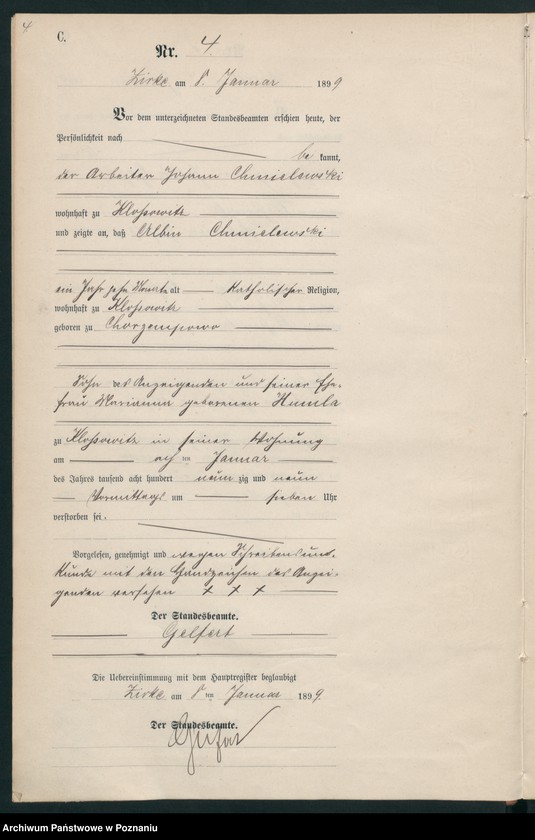 4
C.
Nr. 4.
Zirke am 8. Januar 1899
Vor dem unterzeichneten Standesbeamten erschien heute, der
Persönlichkeit nach
be kannt,
der Arbeiter Johann Chmielewski
wohnhaft zu Kloßowitz
und zeigte an, daß Albin Chmielewski
ein Jahr zehn Monate alt katholischer Religion,
wohnhaft zu Kloßowitz
geboren zu Chorzempowo
Sohn des Anzeigenden und seiner Ehe-
frau Marianna geborenen Hamla
zu Kloßowitz in seiner Wohnung
am acht ten Januar
des Jahres tausend acht hundert neun zig und neun
Vormittags um sieben Uhr
verstorben sei.
Vorgelesen, genehmigt und wegen Schreibensun-
kunde mit den Handzeichen des Anzei-
genden versehen + + +
Der Standesbeamte.
Gelfert
Die Uebereinstimmung mit dem Hauptregister beglaubigt
Zirke am 8 ten Januar 1899.
Der Standesbeamte.
Gelfert
Archiwum Państwowe w Poznaniu